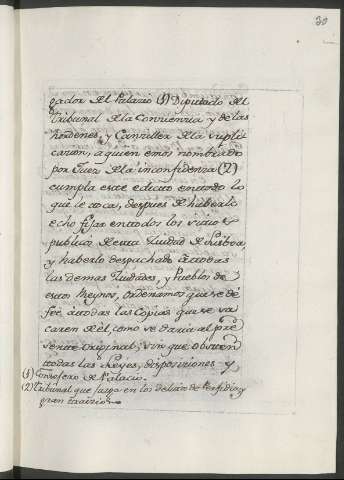 30
gador del Palacio (1) Diputado del
tribunal de la Conciencia y de las
hordenes, y Canciller de la suplicacion
cacion, a quien emos nombrado
por Juez de la inconfidencia (2)
cumpla este edicto en todo lo
que le toca, despues de haberlo
echo fijar en todos los sitios
publicos de esta Ciudad de Lisboa,
y haberlo despachado a todas
las demas Ciudades, y Pueblos de
estos Reynos, ordenamos que se dé
fee a todas las Copias que se sa
caren de él, como se daria al pre
sente Original, sin que obsten
todas las Leyes, disposiciones y
(1) Consejero de Palacio.
(2) Tribunal que juzga en los delitos de Perfidia, y
gran traicion